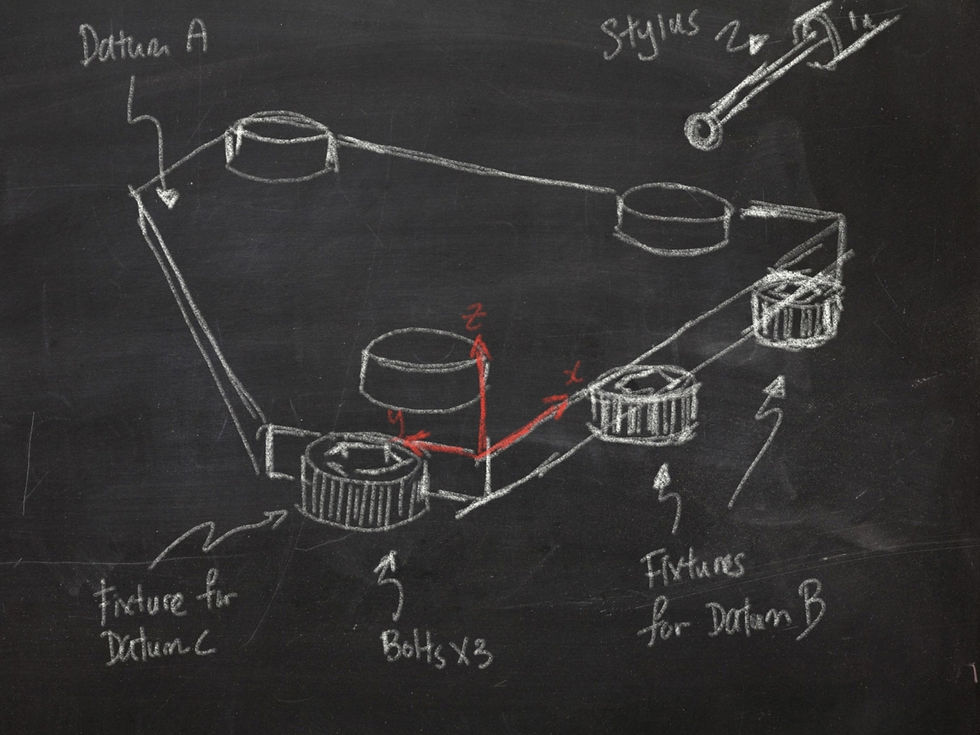 Datum A
Stylus
z
x
y
Fixture for
Datum C
Bolts x3
Fixtures
for Datum B